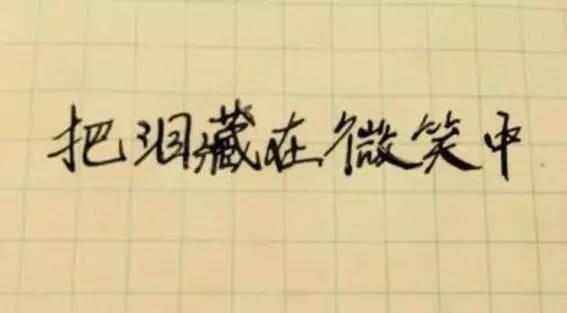 把泪藏在微笑中